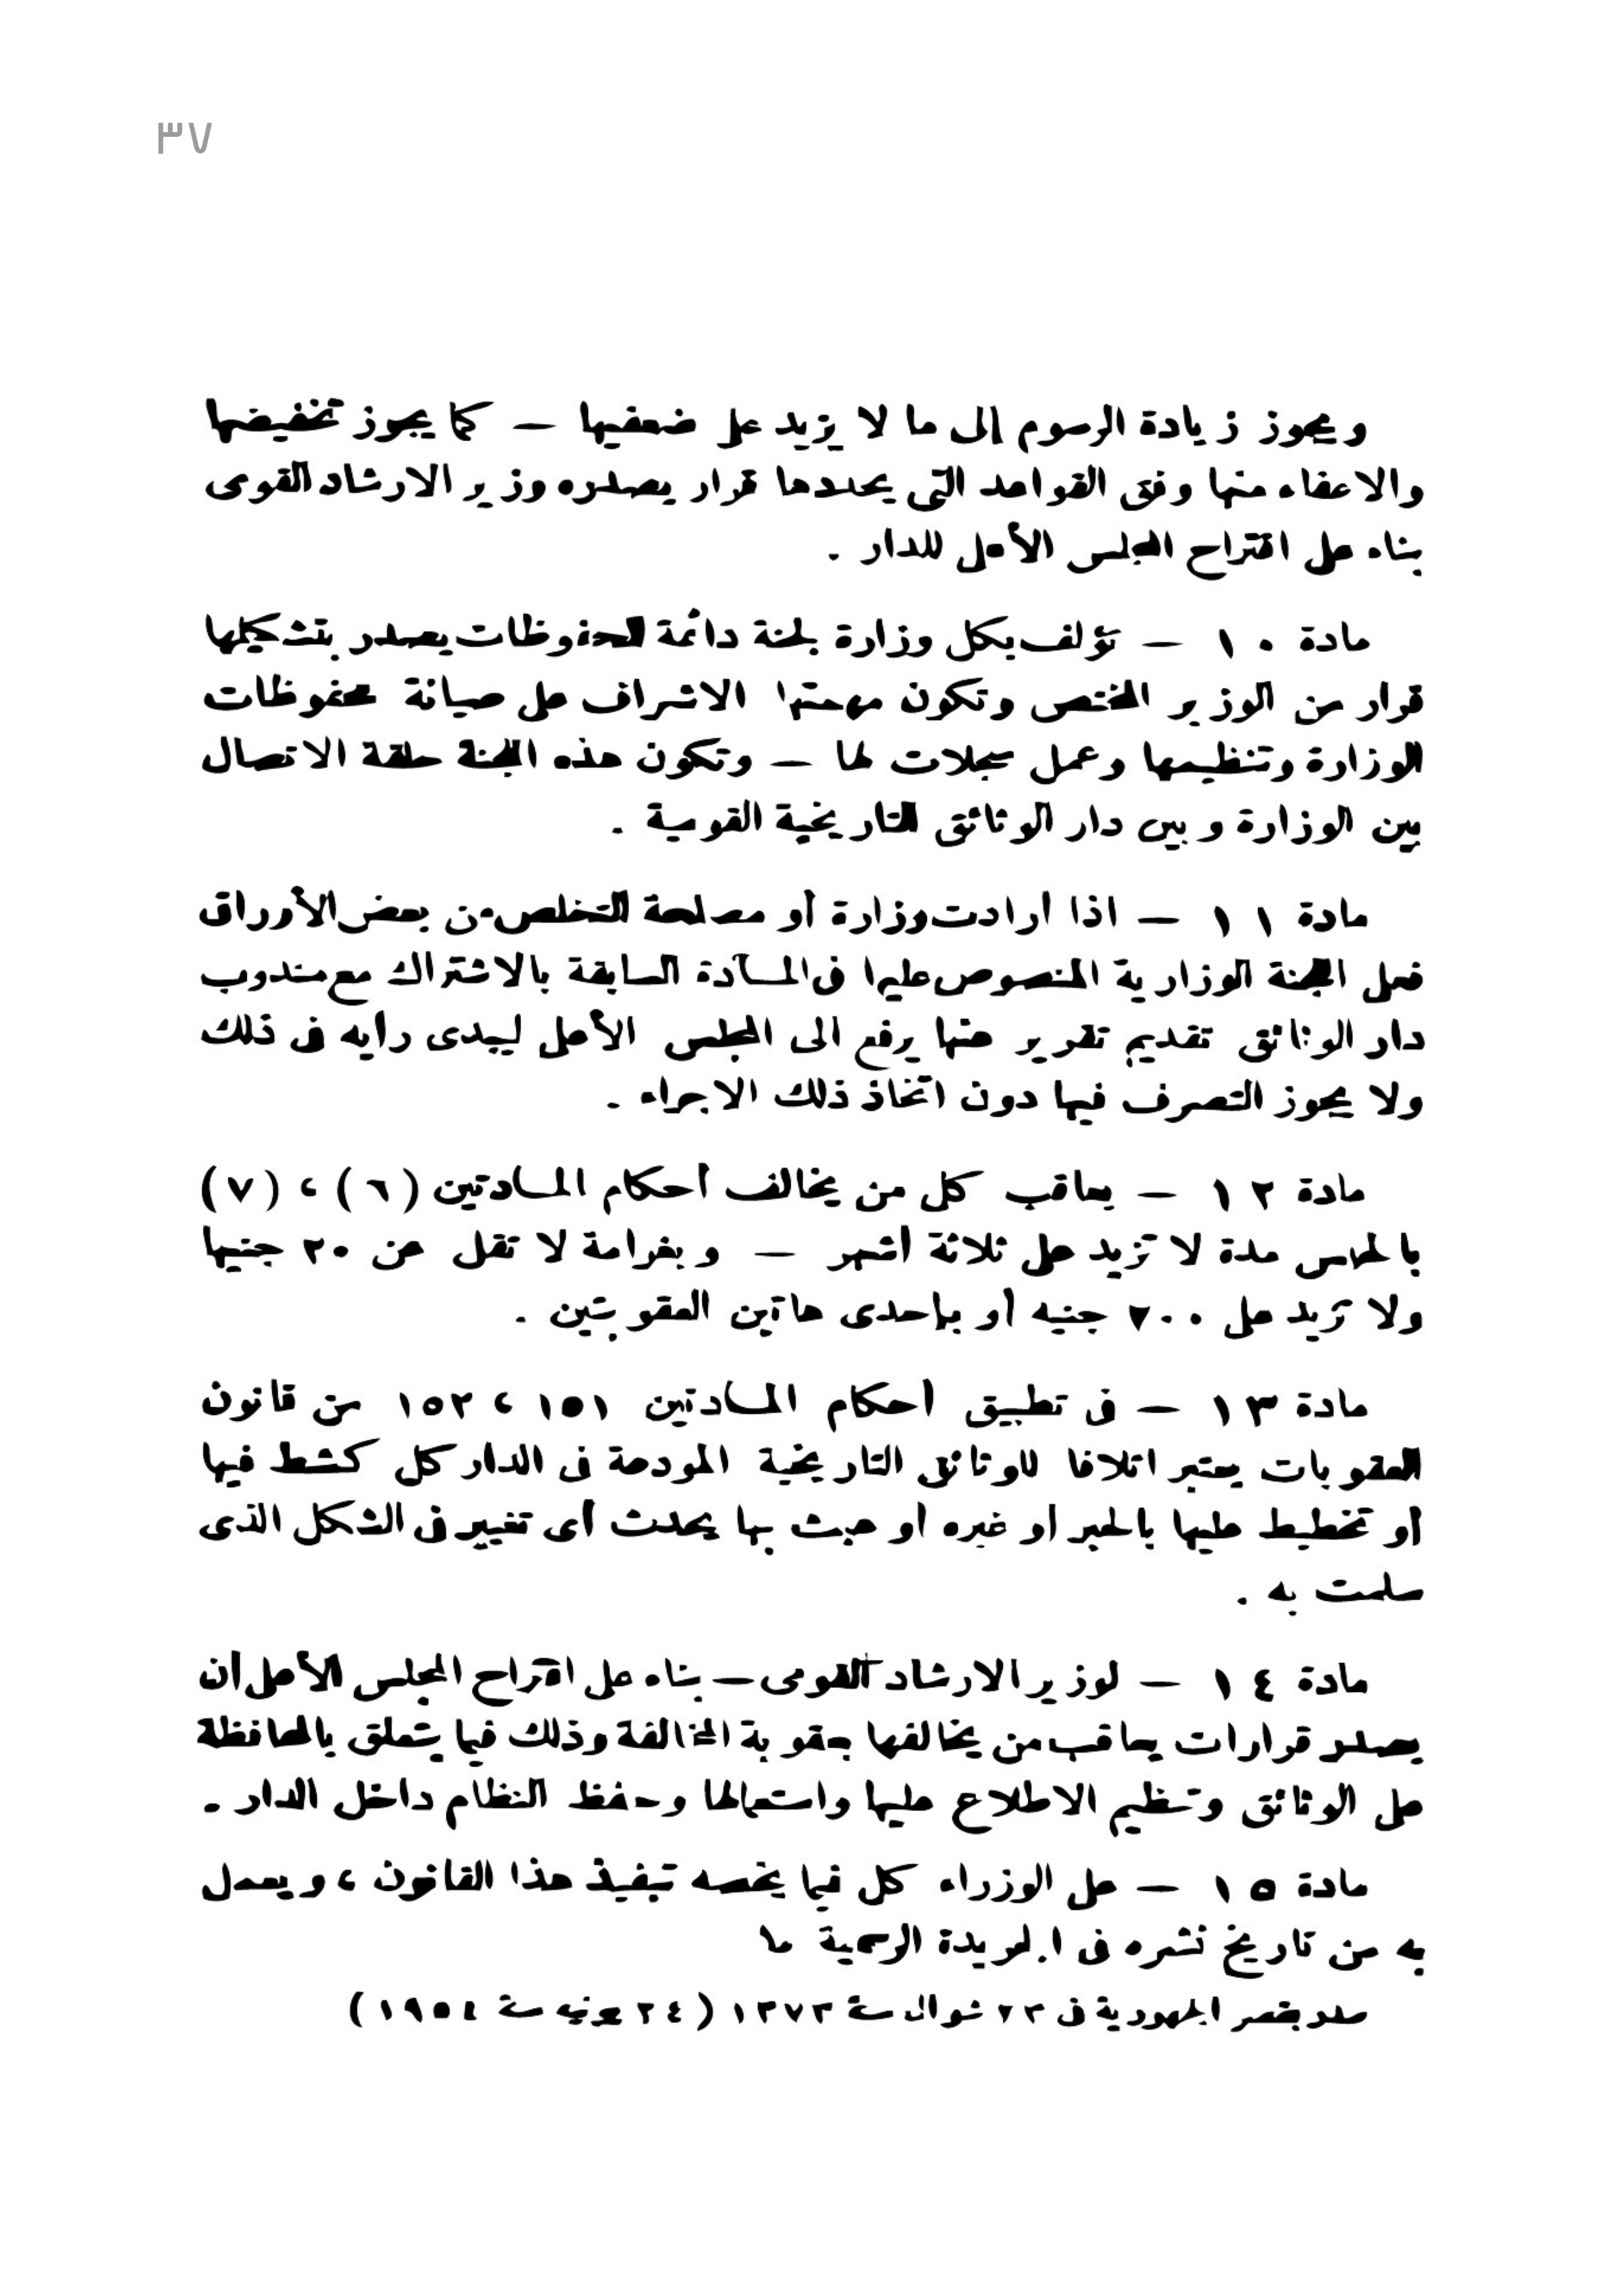 ٣٧
ويجوز زيادة الرسوم إلى ما لا يزيد على ضعفيها — كما يجوز تخفيضها
والاعفاء منها وفق القواعد التى يحددها قرار يصدره وزير الارشاد القومى
بناء على اقتراح المجلس الأعلى للدار .
مادة ١٠ — تؤلف بكل وزارة لجنة دائمة للمحفوظات يصدر بتشكيلها
قرار من الوزير المختص وتكون مهمتها الاشراف على صيانة محفوظات
الوزارة وتنظيمها وعمل سجلات لها — وتكون هذه اللجنة حلقة الاتصال
بين الوزارة وبين دار الوثائق التاريخية القومية .
مادة ١١ — اذا أرادت وزارة أو مصلحة التخلص من بعض الأوراق
فعلى اللجنة الوزارية المنصوص عليها فى المادة السابقة بالاشتراك مع مندوب
دار الوثائق تقديم تقرير عنها يرفع الى المجلس الأعلى ليبدى رأيه فى ذلك
ولا يجوز التصرف فيها دون اتخاذ ذلك الاجراء .
مادة ١٢ — يعاقب كل من يخالف أحكام المادتين (٦) ، (٧)
بالحبس مدة لا تزيد على ثلاثة أشهر — وبغرامة لا تقل عن ٢٠ جنيها
ولا تزيد على ٢٠٠ جنيه أو بإحدى هاتين العقوبتين .
مادة ١٣ — فى تطبيق أحكام المادتين ١٥١ ، ١٥٢ من قانون
العقوبات يعتبر اتلافا للوثائق التاريخية المودعة فى الدار كل كشط فيها
أو تخطيط عليها بالحبر او غيره أو عبث بها يحدث أى تغيير فى الشكل الذى
سلمت به .
مادة ١٤ — لوزير الارشاد القومى — بناء على اقتراح المجلس الأعلى أن
يصدر قرارات يعاقب من يخالفها بعقوبة المخالفة وذلك فيما يتعلق بالمحافظة
على الوثائق وتنظيم الاطلاع عليها واستعمالها وحفظ النظام داخل الدار .
مادة ١٥ — على الوزراء كل فيما يخصه تنفيذ هذا القانون ، ويعمل
به من تاريخ نشره فى الجريدة الرسمية ما
صدر بقصر الجمهورية فى ٢٣ شوال سنة ١٣٧٣ (٢٤ يونيه سنة ١٩٥٤)